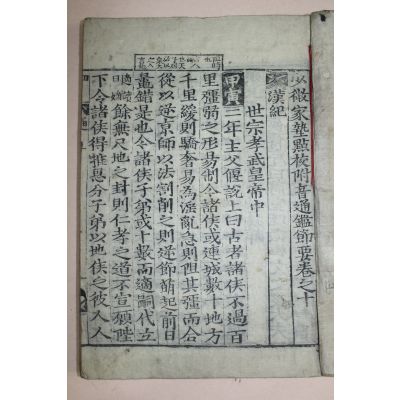 少微家塾點校附音通鑑節要卷之十
漢紀
世宗孝武皇帝中
甲寅三年主父偃說上曰古者諸侯不過百
里彊弱之形易制今諸侯或連城數十地方
千里緩則驕奢易為淫亂急則阻其彊而合
從以逆京師以法割削之則逆節萌起前日
鼂錯是也今諸侯子弟或十數而適嗣代立
餘無尺地之封則仁孝之道不宣願陛
下令諸侯得推恩分子弟以地侯之彼人人